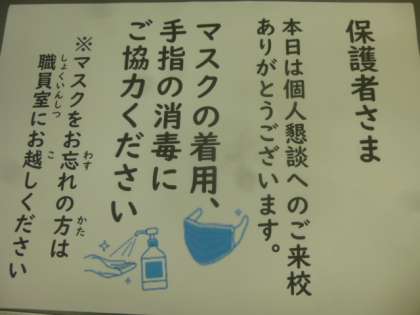 保護者さま
本日は個人懇談へのご来校
ありがとうございます。
マスクの着用、
手指の消毒に
ご協力ください
※マスクをお忘れの方は
職員室にお越しください